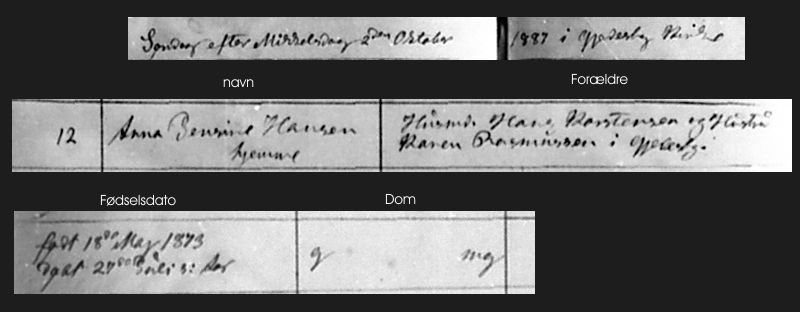 Søndag efter Mikkelsdag 2den Oktober 1887 i Gjedesby Kirke
navn
Forældre
12 Anna Hansen Husmd. Hans Karstensen og Hustru
hjemme Karen Rasmussen i
Fødselsdato
Dom
født 18de Maj 1873
døbt 27de Juli s: Aar g mg